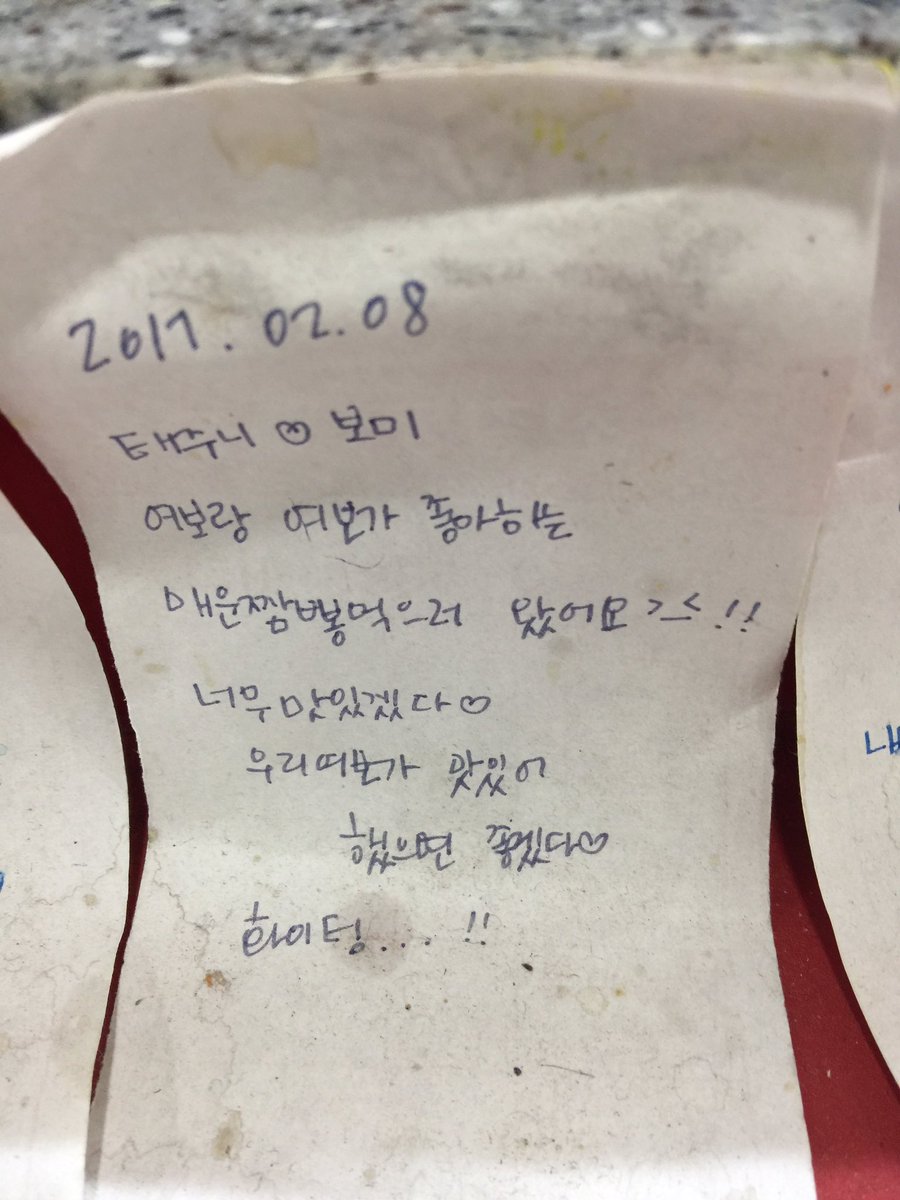 2017.02.08
태수니 ♡ 보미
여보랑 여보가 좋아하는
매운짬뽕먹으러 왔어요 >_< !!
너무맛있겠다♡
우리여보가 맛있어
했으면 좋겠다♡
화이팅.... !!